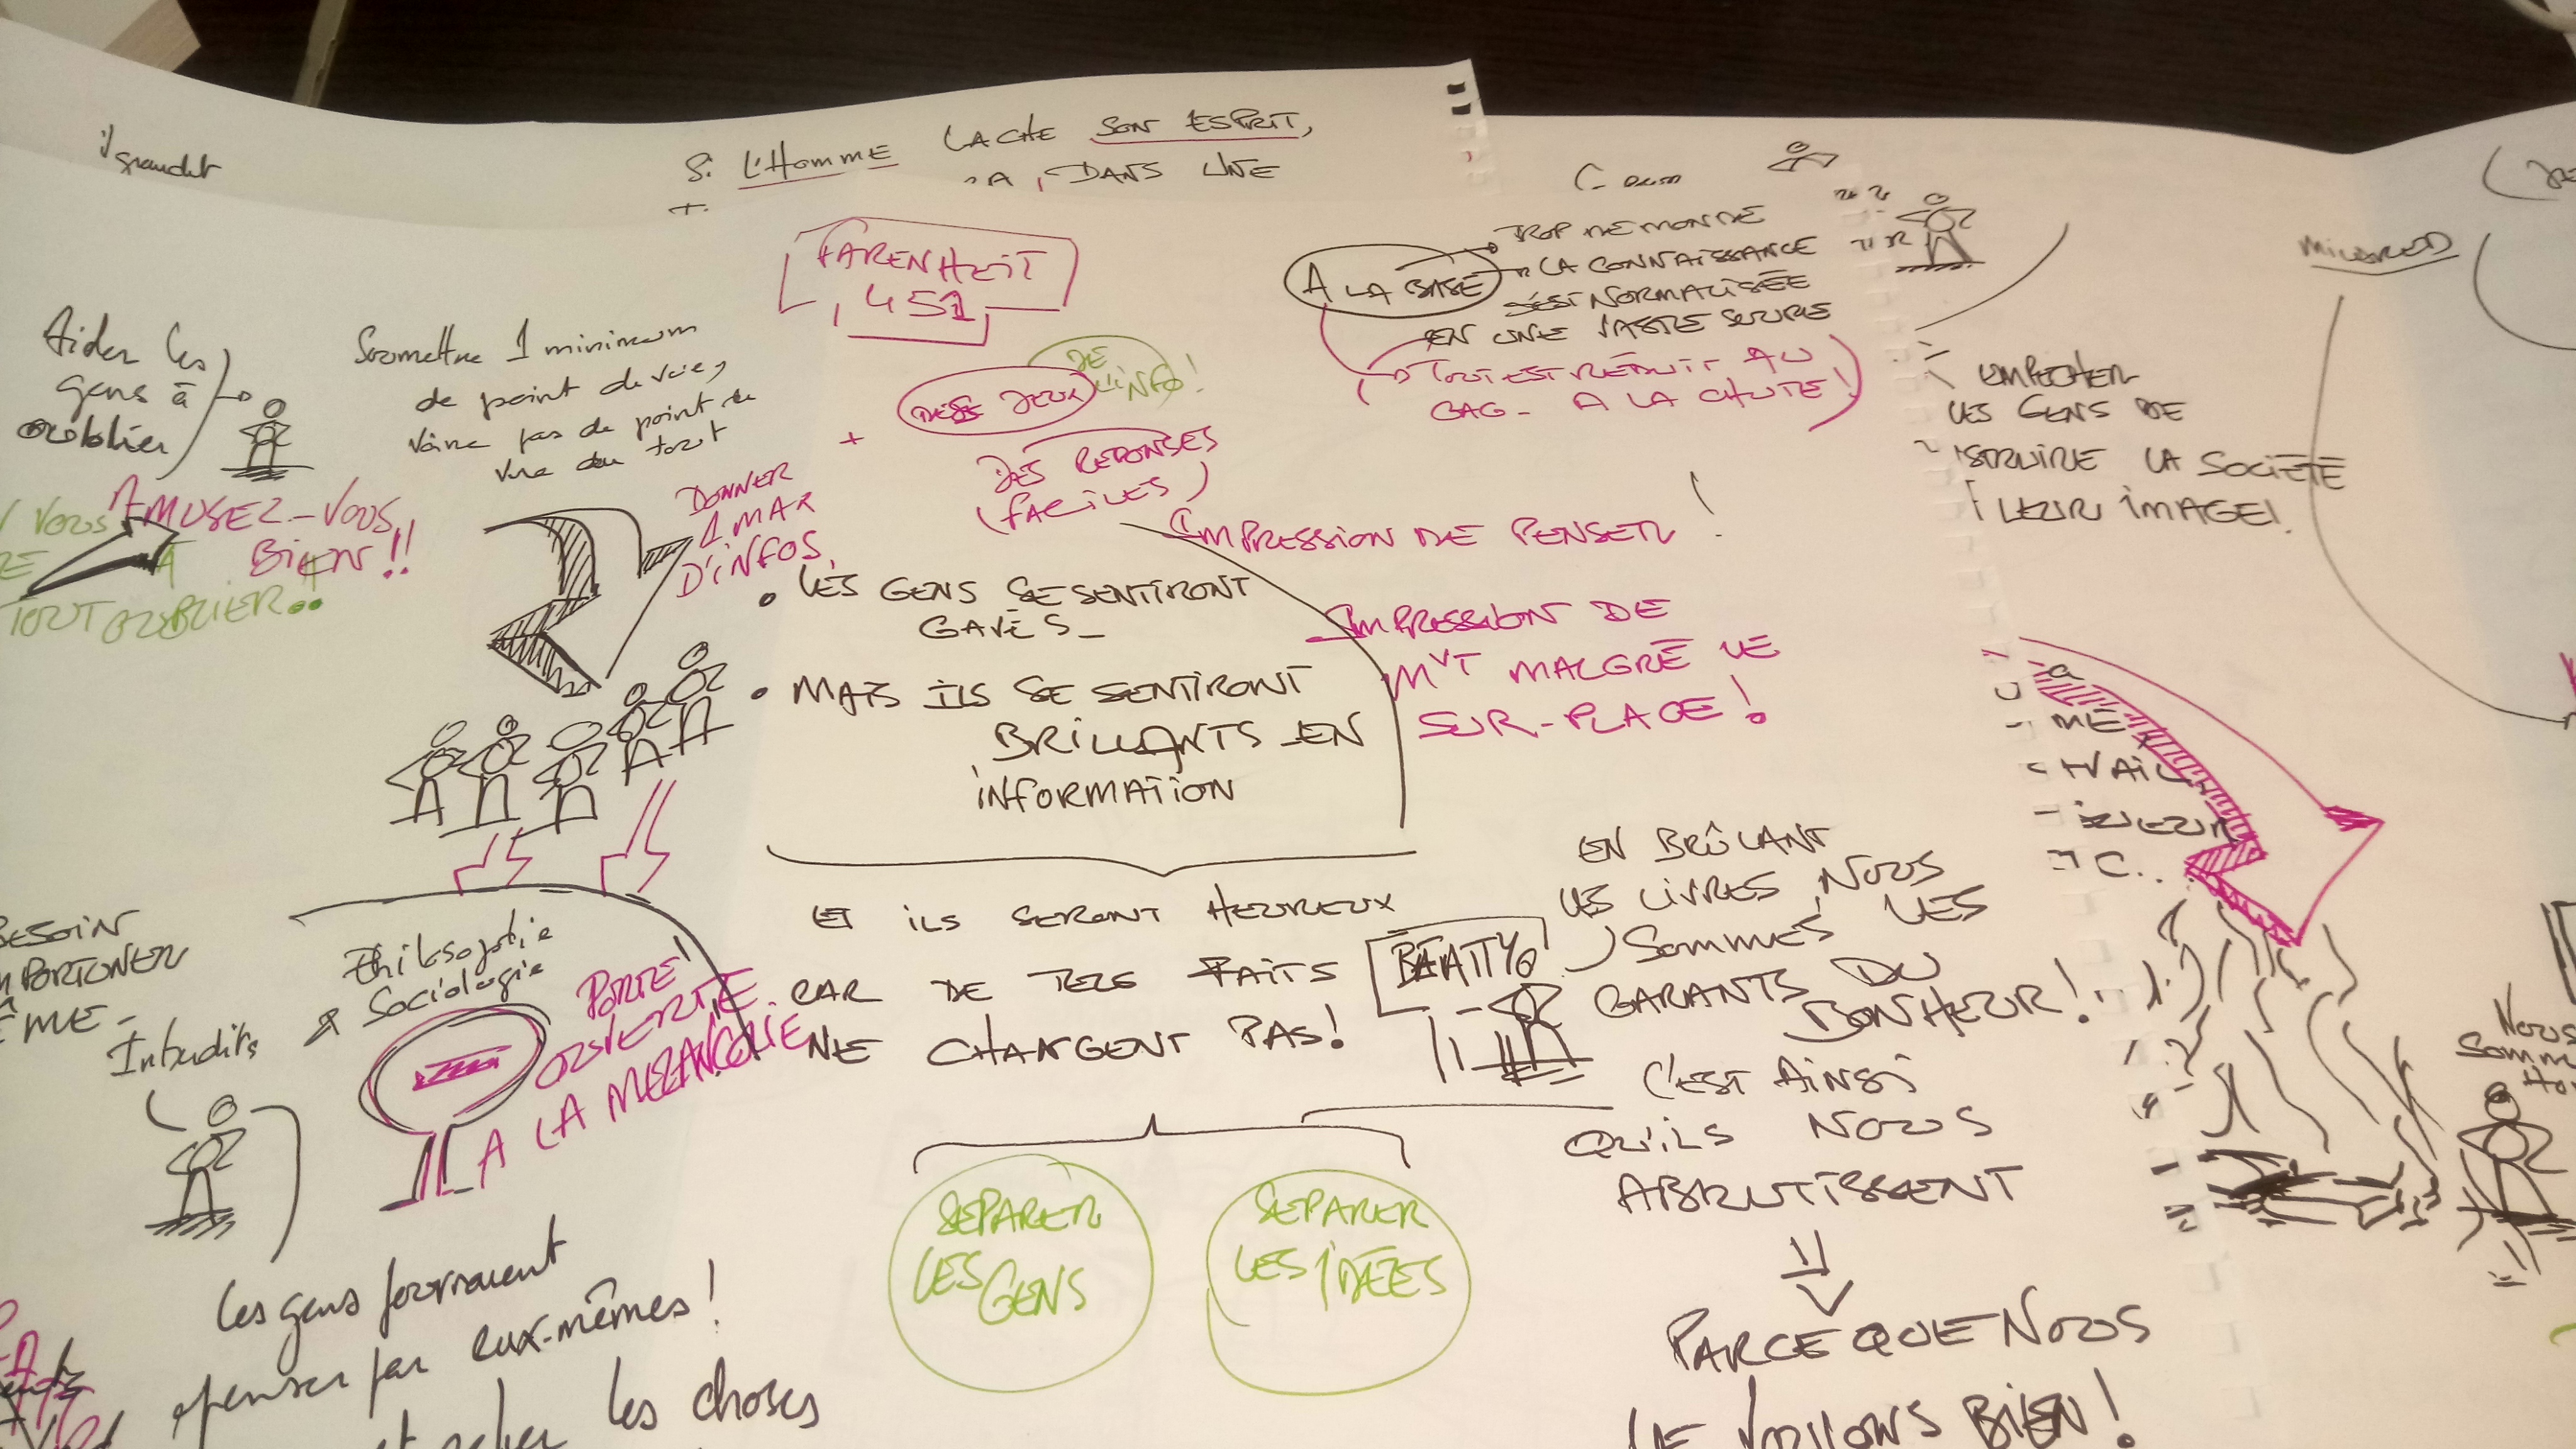 Si L'HOMME LACHE SON ESPRIT,
DANS UNE
FARENHEIT
451
A LA BASE
TROP DE MONDE
LA CONNAISSANCE
S'EST NORMALISÉE
EN UNE VASTE
TOUT EST RÉDUIT AU
GAG - A LA CHUTE!
MILDRED
Aider les
gens à
oublier
Soumettre 1 minimum
de point de vue,
voire pas de point de
vue du tout
DES JEUX
DE
L'INFO!
+
DES REPONSES
(FACILES)
DONNER
1 MAX
D'INFOS
EMPECHER
LES GENS DE
LA SOCIÉTÉ
LEUR IMAGE!
VOUS
AMUSEZ-VOUS
BIEN!!
A
TOUT OUBLIER..
IMPRESSION DE PENSER!
IMPRESSION DE
MVT MALGRÉ LE
SUR-PLACE!
• LES GENS SE SENTIRONT
GAVÉS_
• MAIS ILS SE SENTIRONT
BRILLANTS EN
INFORMATION
ET ILS SERONT HEUREUX
CAR DE TELS FAITS
NE CHANGENT PAS!
BEATTY
EN BRÛLANT
LES LIVRES, NOUS
SOMMES LES
GARANTS DU
BONHEUR!
C'EST AINSI
QU'ILS NOUS
ABRUTISSENT
PARCE QUE NOUS
LE VOULONS BIEN!
BESOIN
Philosophie
& Sociologie
Interdits
PORTE
OUVERTE
A LA MELANCOLIE
SEPARER
LES GENS
SEPARER
LES IDÉES
Les gens pourraient
penser par eux-mêmes!
les choses
Nous